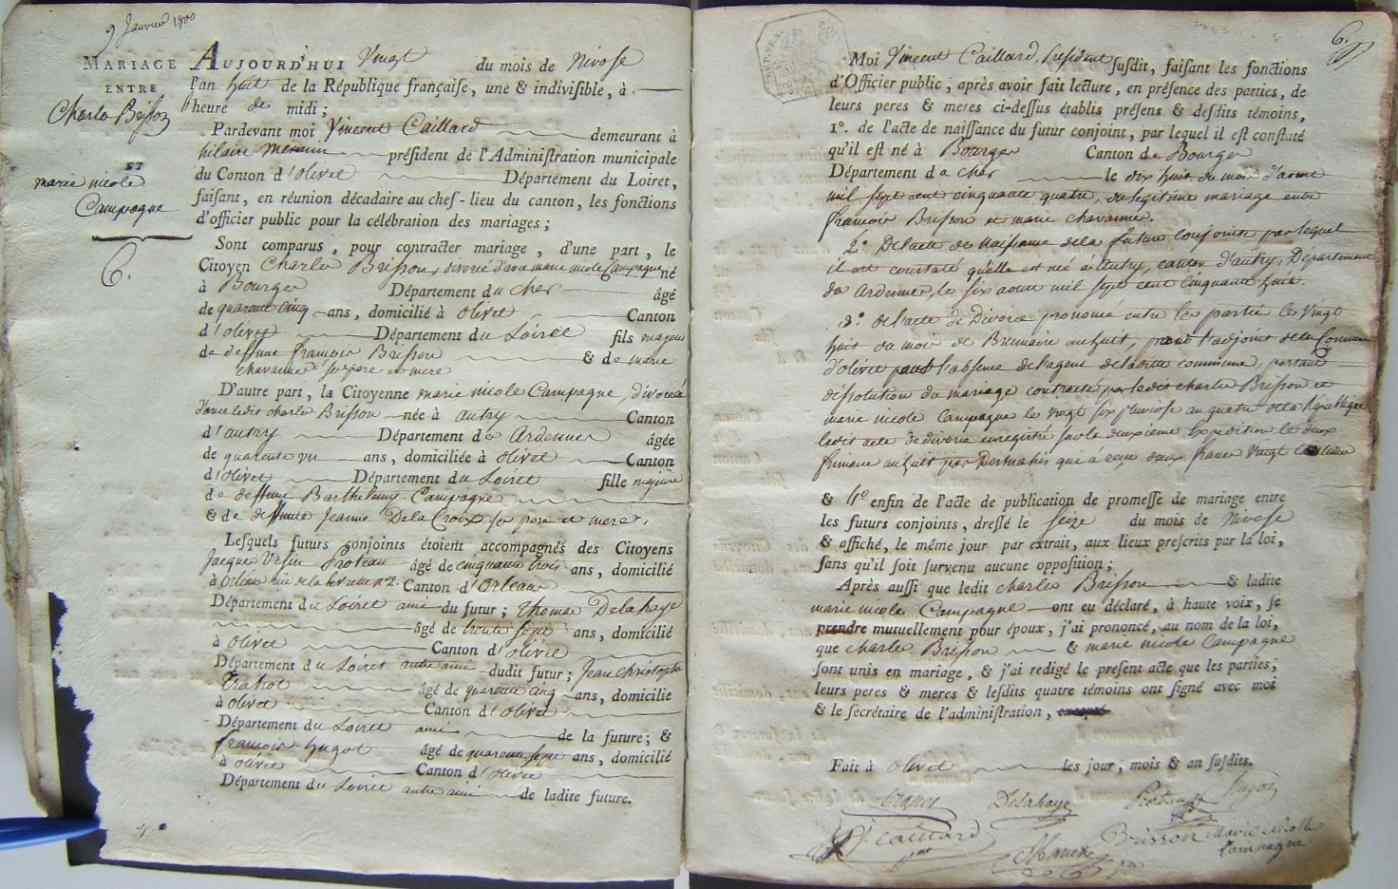 9 Janvier 1800
MARIAGE
ENTRE
Charles Brisson
ET
marie nicole
Campagne
6.
AUJOURD'HUI Vingt du mois de Nivose
l'an huit de la République françaiſe, une & indiviſible, à
heure de midi;
Pardevant moi Vincent Caillard demeurant à
hilaire mesmin préſident de l'Adminiſtration municipale
du Canton d'olivet Département du Loiret,
faiſant, en réunion décadaire au chef-lieu du canton, les fonctions
d'officier public pour la célébration des mariages;
Sont comparus, pour contracter mariage, d'une part, le
Citoyen Charles Brisson, divorcé d'avec marie nicole Campagne né
à Bourges Département du cher âgé
de quarante cinq ans, domicilié à olivet Canton
d'olivet Département du Loiret fils majeur
de deffunt françois Brisson & de marie
Chavanne ses pere et mere
D'autre part, la Citoyenne marie nicole Campagne, divorcée
d'avec ledit charles Brisson née à autry Canton
d'autry Département des Ardennes âgée
de quarante un ans, domiciliée à olivet Canton
d'olivet Département du Loiret fille majeure
de deffunt Barthelemy Campagne
& de deffunte Jeanne Delacroix ses pere et mere.
Leſquels futurs conjoints étoient accompagnés des Citoyens
Jacque Proteau âgé de cinquante trois ans, domicilié
à Orleans rue de la Canton d'Orleans
Département du Loiret ami du futur; thomas Delahaye
âgé de trente sept ans, domicilié
à olivet Canton d'olivet
Département du Loiret autre ami dudit futur; Jean christophe
âgé de quarante cinq ans, domicilié
à olivet Canton d'olivet
Département du Loiret ami de la future; &
françois hugot âgé de quarante sept ans, domicilié
à olivet Canton d'olivet
Département du Loiret autre ami de ladite future.
6.
Moi Vincent Caillard President ſuſdit, faiſant les fonctions
d'Officier public, après avoir fait lecture, en préſence des parties, de
leurs peres & meres ci-deſſus établis préſens & deſdits témoins,
1°. de l'acte de naiſſance du futur conjoint, par lequel il eſt conſtaté
qu'il eſt né à Bourges Canton de Bourges
Département du cher le dix huit du mois d'aout
mil sept cent cinquante quatre, du legitime mariage entre
francois Brisson et marie chavanne.
2° De l'acte de Naissance de la future conjointe par lequel
il est constaté qu'elle est née à autry, canton d'autry, Département
des Ardennes, le six aout mil sept cent cinquante huit.
3° de l'acte de Divorce prononcé entre les parties le vingt
huit du mois de Brumaire an huit, l'adjoint de la Commune
d'olivet l'absence de l'agent de ladite commune, portant
dissolution du mariage contracté par ledit charles Brisson et
marie nicole Campagne le vingt six an quatre de la Republique
ledit acte de divorce enregistré sur la deuxieme Expedition le deux
frimaire an huit par qui a reçu deux francs vingt centimes
& 4° enfin de l'acte de publication de promeſſe de mariage entre
les futurs conjoints, dreſſé le seize du mois de Nivose
& affiché, le même jour par extrait, aux lieux preſcrits par la loi,
ſans qu'il ſoit ſurvenu aucune oppoſition;
Après auſſi que ledit charles Brisson & ladite
marie nicole Campagne ont eu déclaré, à haute voix, ſe
prendre mutuellement pour époux, j'ai prononcé, au nom de la loi,
que charles Brisson & marie nicole Campagne
ſont unis en mariage, & j'ai redigé le preſent acte que les parties,
leurs peres & meres & leſdits quatre témoins ont ſigné avec moi
& le ſecrétaire de l'adminiſtration,
Fait à olivet les jour, mois & an ſuſdits.
Delahaye Proteau hugot
Caillard Brisson Marie nicolle
Campagne